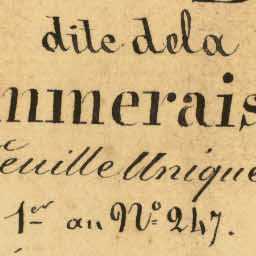 dite dela
mmerais
feuille Unique
1er au No. 247.